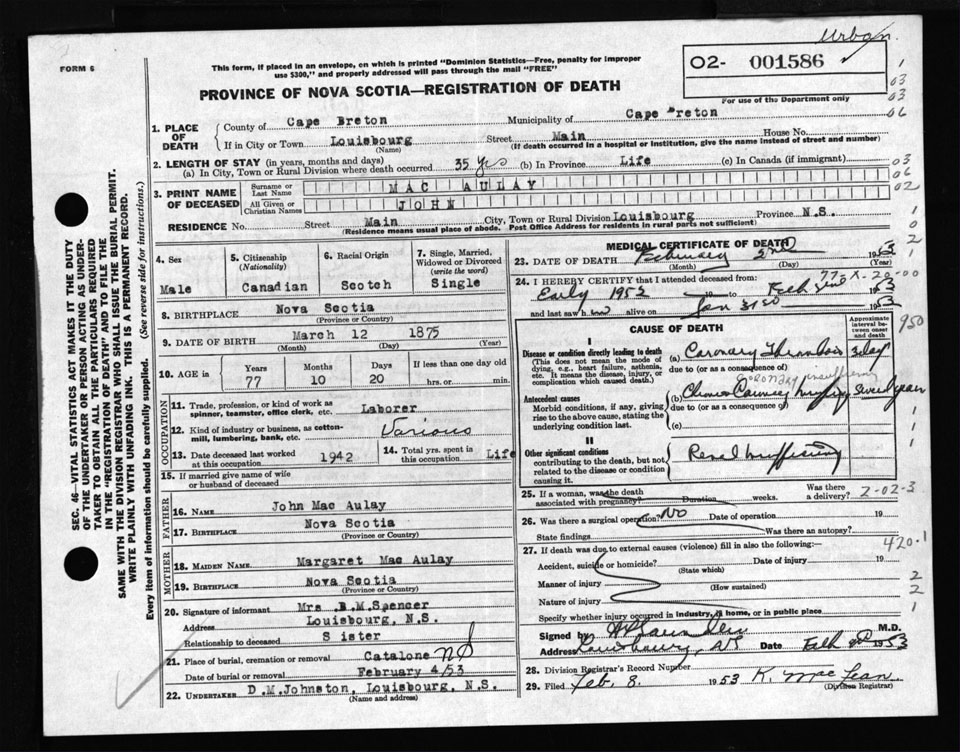 Urban.
FORM 6
This form, if placed in an envelope, on which is printed "Dominion Statistics—Free, penalty for improper
use $300," and properly addressed will pass through the mail "FREE"
02- 001586
For use of the Department only
PROVINCE OF NOVA SCOTIA—REGISTRATION OF DEATH
1. PLACE OF DEATH
County of Cape Breton Municipality of Cape Breton
If in City or Town Louisbourg Street Main House No.
(Name) (If death occurred in a hospital or institution, give the name instead of street and number)
2. LENGTH OF STAY (in years, months and days)
(a) In City, Town or Rural Division where death occurred 35 yrs (b) In Province Life (c) In Canada (if immigrant)
3. PRINT NAME OF DECEASED
Surname or Last Name MAC AULAY
All Given or Christian Names JOHN
RESIDENCE No. Street Main City, Town or Rural Division Louisbourg Province N.S.
(Residence means usual place of abode. Post Office Address for residents in rural parts not sufficient)
4. Sex
Male
5. Citizenship
(Nationality)
Canadian
6. Racial Origin
Scotch
7. Single, Married, Widowed or Divorced
(write the word)
Single
8. BIRTHPLACE Nova Scotia
(Province or Country)
9. DATE OF BIRTH March 12 1875
(Month) (Day) (Year)
10. AGE in
Years Months Days If less than one day old
77 10 20 hrs. or min.
OCCUPATION
11. Trade, profession, or kind of work as
spinner, teamster, office clerk, etc. Laborer
12. Kind of industry or business, as cotton-
mill, lumbering, bank, etc. Various
13. Date deceased last worked
at this occupation 1942
14. Total yrs. spent in
this occupation Life
15. If married give name of wife
or husband of deceased
FATHER
16. NAME John Mac Aulay
17. BIRTHPLACE Nova Scotia
(Province or Country)
MOTHER
18. MAIDEN NAME Margaret Mac Aulay
19. BIRTHPLACE Nova Scotia
(Province or Country)
20. Signature of informant Mrs B.M.Spencer
Address Louisbourg, N.S.
Relationship to deceased Sister
21. Place of burial, cremation or removal Catalone NS
Date of burial or removal February 4/53
22. UNDERTAKER D.M.Johnston, Louisbourg, N.S.
(Name and address)
MEDICAL CERTIFICATE OF DEATH
23. DATE OF DEATH February 2nd 1953
(Month) (Day) (Year)
77-X-20-00
24. I HEREBY CERTIFY that I attended deceased from:
Early 1952 to Feb 2nd 1953
and last saw h im alive on Jan 31st 1953
CAUSE OF DEATH
Approximate interval between onset and death
I
Disease or condition directly leading to death
(This does not mean the mode of dying, e.g., heart failure, asthenia, etc. It means the disease, injury, or complication which caused death.)
(a) Coronary Thrombosis 2 day
due to (or as a consequence of)
Coronary insufficiency
Antecedent causes
Morbid conditions, if any, giving rise to the above cause, stating the underlying condition last.
(b) Chronic Coronary Insufficiency Several years
due to (or as a consequence of)
(c)
II
Other significant conditions
contributing to the death, but not related to the disease or condition causing it.
Renal Insufficiency
25. If a woman, was the death
associated with pregnancy? Duration weeks. Was there a delivery?
2-02-3
26. Was there a surgical operation? No Date of operation 19
State findings Was there an autopsy?
27. If death was due to external causes (violence) fill in also the following:— 420.1
Accident, suicide or homicide? Date of injury 19
(State which)
Manner of injury
(How sustained)
Nature of injury
Specify whether injury occurred in industry, a home, or in public place
Signed by M.D.
Address Louisbourg, NS Date 1953
28. Division Registrar's Record Number
29. Filed Feb. 8. 1953 K. MacLean
(Division Registrar)
SEC. 46—VITAL STATISTICS ACT MAKES IT THE DUTY
OF THE UNDERTAKER OR PERSON ACTING AS UNDER-
TAKER TO OBTAIN ALL THE PARTICULARS REQUIRED
IN THE "REGISTRATION OF DEATH" AND TO FILE THE
SAME WITH THE DIVISION REGISTRAR WHO SHALL ISSUE THE BURIAL PERMIT.
WRITE PLAINLY WITH UNFADING INK. THIS IS A PERMANENT RECORD.
Every item of information should be carefully supplied. (See reverse side for instructions.)
1
03
03
06
03
06
02
1
0
2
950
1
1
1
1
2
2
1